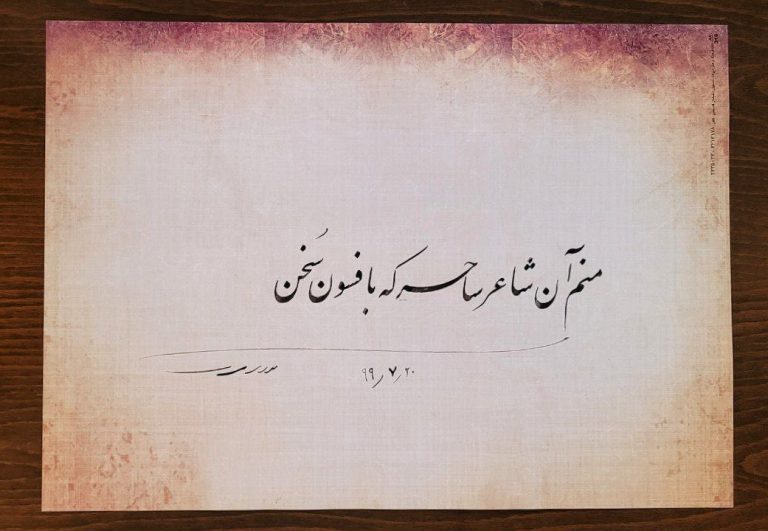 منم آن شاعر ساحر که با فسون سُخن
۹۹/۷/۲۰